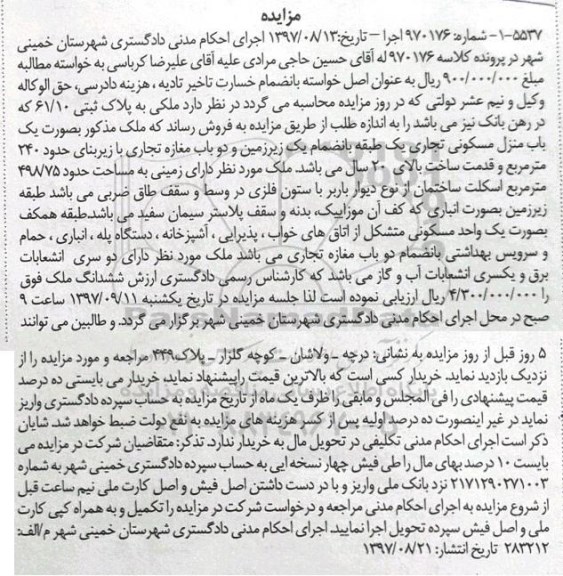 مزایده
۱-۵۵۳۷- شماره: ۹۷۰۱۷۶ اجرا – تاریخ:۱۳۹۷/۰۸/۱۳ اجرای احکام مدنی دادگستری شهرستان خمینی
شهر در پرونده کلاسه ۹۷۰۱۷۶ له آقای حسین حاجی مرادی علیه آقای علیرضا کرباسی به خواسته مطالبه
مبلغ ۹۰۰/۰۰۰/۰۰۰ ریال به عنوان اصل خواسته بانضمام خسارت تاخیر تادیه ، هزینه دادرسی، حق الوکاله
وکیل و نیم عشر دولتی که در روز مزایده محاسبه می گردد در نظر دارد ملکی به پلاک ثبتی ۶۱/۱۰ که
در رهن بانک نیز می باشد را به اندازه طلب از طریق مزایده به فروش رساند که ملک مذکور بصورت یک
باب منزل مسکونی تجاری یک طبقه بانضمام یک زیرزمین و دو باب مغازه تجاری با زیربنای حدود ۲۴۰
مترمربع و قدمت ساخت بالای ۲۰ سال می باشد. ملک مورد نظر دارای زمینی به مساحت حدود ۴۹۸/۷۵
مترمربع اسکلت ساختمان از نوع دیوار باربر با ستون فلزی در وسط و سقف طاق ضربی می باشد طبقه
زیرزمین بصورت انباری که کف آن موزاییک، بدنه و سقف پلاستر سیمان سفید می باشد.طبقه همکف
بصورت یک واحد مسکونی متشکل از اتاق های خواب ، پذیرایی ، آشپزخانه ، دستگاه پله ، انباری ، حمام
و سرویس بهداشتی بانضمام دو باب مغازه تجاری می باشد ملک مورد نظر دارای دو سری انشعابات
برق و یکسری انشعابات آب و گاز می باشد که کارشناس رسمی دادگستری ارزش ششدانگ ملک فوق
را ۴/۳۰۰/۰۰۰/۰۰۰ ریال ارزیابی نموده است لذا جلسه مزایده در تاریخ یکشنبه ۱۳۹۷/۰۹/۱۱ ساعت ۹
صبح در محل اجرای احکام مدنی دادگستری شهرستان خمینی شهر برگزار می گردد. و طالبین می توانند
۵ روز قبل از روز مزایده به نشانی: درچه ـ ولاشان ـ کوچه گلزار ـ پلاک۴۴۹ مراجعه و مورد مزایده را از
نزدیک بازدید نماید. خریدار کسی است که بالاترین قیمت را پیشنهاد نماید. خریدار می بایستی ده درصد
قیمت پیشنهادی را فی المجلس و مابقی را ظرف یک ماه از تاریخ مزایده به حساب سپرده دادگستری واریز
نماید در غیر اینصورت ده درصد اولیه پس از کسر هزینه های مزایده به نفع دولت ضبط خواهد شد. شایان
ذکر است اجرای احکام مدنی تکلیفی در تحویل مال به خریدار ندارد. تذکر: متقاضیان شرکت در مزایده می
بایست ۱۰ درصد بهای مال را طی فیش چهار نسخه ایی به حساب سپرده دادگستری خمینی شهر به شماره
۲۱۷۱۲۹۰۲۷۱۰۰۳ نزد بانک ملی واریز و با در دست داشتن اصل فیش و اصل کارت ملی نیم ساعت قبل
از شروع مزایده به اجرای احکام مدنی مراجعه و درخواست شرکت در مزایده را تکمیل و به همراه کپی کارت
ملی و اصل فیش سپرده تحویل اجرا نمایید. اجرای احکام مدنی دادگستری شهرستان خمینی شهر م/الف:
۲۸۳۲۱۲ تاریخ انتشار: ۱۳۹۷/۰۸/۲۱